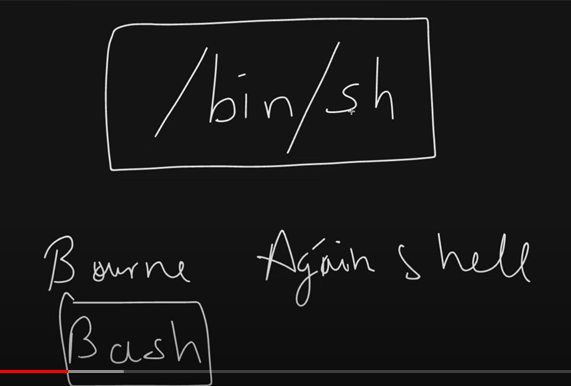 /bin/sh
Bourne Again shell
Bash